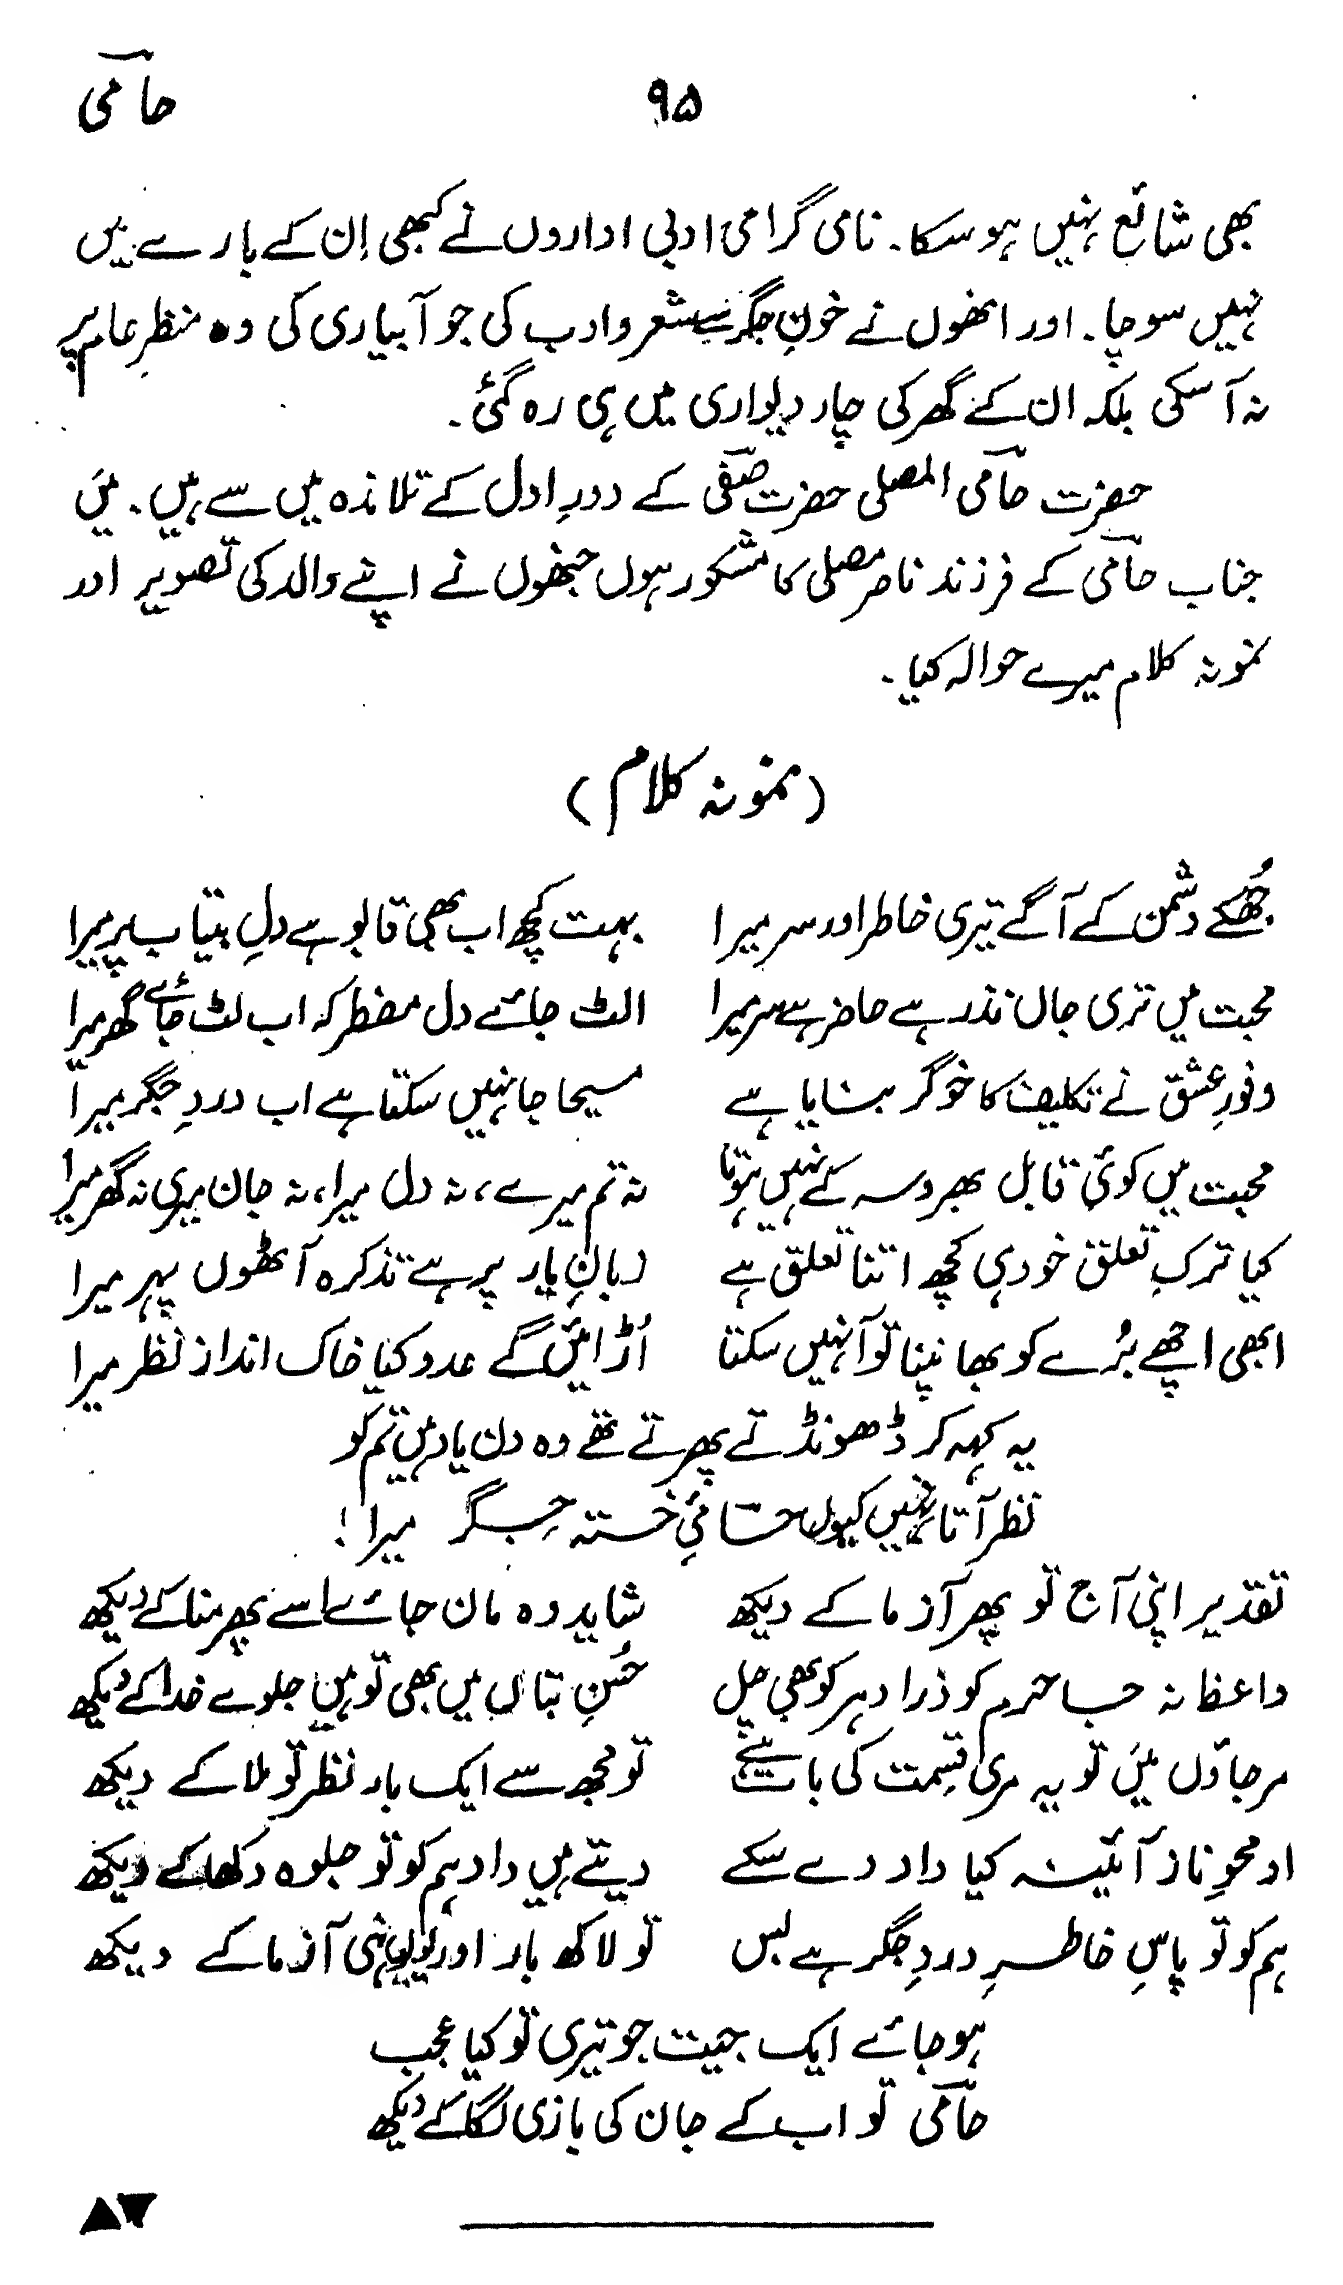 حامی ۹۵
بھی شائع نہیں ہو سکا۔ نامی گرامی ادبی اداروں نے کبھی اِن کے بارے میں
نہیں سوچا۔ اور انھوں نے خونِ جگر سے شعر و ادب کی جو آبیاری کی وہ منظرِ عام پر
نہ آ سکی بلکہ ان کے گھر کی چار دیواری میں ہی رہ گئی۔
حضرت حامی المصلی حضرت صفی کے دورِ اول کے تلامذہ میں سے ہیں۔ میں
جناب حامی کے فرزند ناصر مصلی کا مشکور ہوں جنھوں نے اپنے والد کی تصویر اور
نمونہ کلام میرے حوالہ کیا۔
(نمونہ کلام)
جُھکے دشمن کے آگے تیری خاطر اور سر میرا بہت کچھ اب بھی قابو ہے دلِ بیتاب پر میرا
محبت میں تری جان نذر ہے حاضر ہے سر میرا الٹ جائے دل مضطر کہ اب لٹ جائے گھر میرا
وفورِ عشق نے تکلیف کا خوگر بنایا ہے مسیحا جا نہیں سکتا ہے اب دردِ جگر میرا
محبت میں کوئی قابل بھروسہ کے نہیں ہوتا نہ تم میرے، نہ دل میرا، نہ جان میری نہ گھر میرا
کیا ترکِ تعلق خود ہی کچھ اتنا تعلق ہے زبانِ یار پر ہے تذکرہ آٹھوں پہر میرا
ابھی اچھے بُرے کو بھانپنا تو آ نہیں سکتا اُڑائیں گے عدو کیا خاک انداز نظر میرا
یہ کہہ کر ڈھونڈتے پھرتے تھے وہ دن یاد ہیں تم کو
نظر آتا نہیں کیوں حامیِٔ خستہ جِگر میرا!
تقدیر اپنی آج تو پھر آزما کے دیکھ شاید وہ مان جائے اسے پھر منا کے دیکھ
واعظا نہ جا حرم کو ذرا دہر کو بھی چل حُسنِ بتاں میں بھی تو ہیں جلوے خدا کے دیکھ
مر جاؤں میں تو یہ مری قسمت کی بات ہے تو مجھ سے ایک بار نظر تو ملا کے دیکھ
او محوِ ناز آئینہ کیا داد دے سکے دیتے ہیں داد ہم کو تو جلوہ دکھا کے دیکھ
ہم کو تو پاسِ خاطرِ دردِ جگر ہے بس تو لاکھ بار اور یونہی آزما کے دیکھ
ہو جائے ایک جیت جو تیری تو کیا عجب
حامی تو اب کے جان کی بازی لگا کے دیکھ